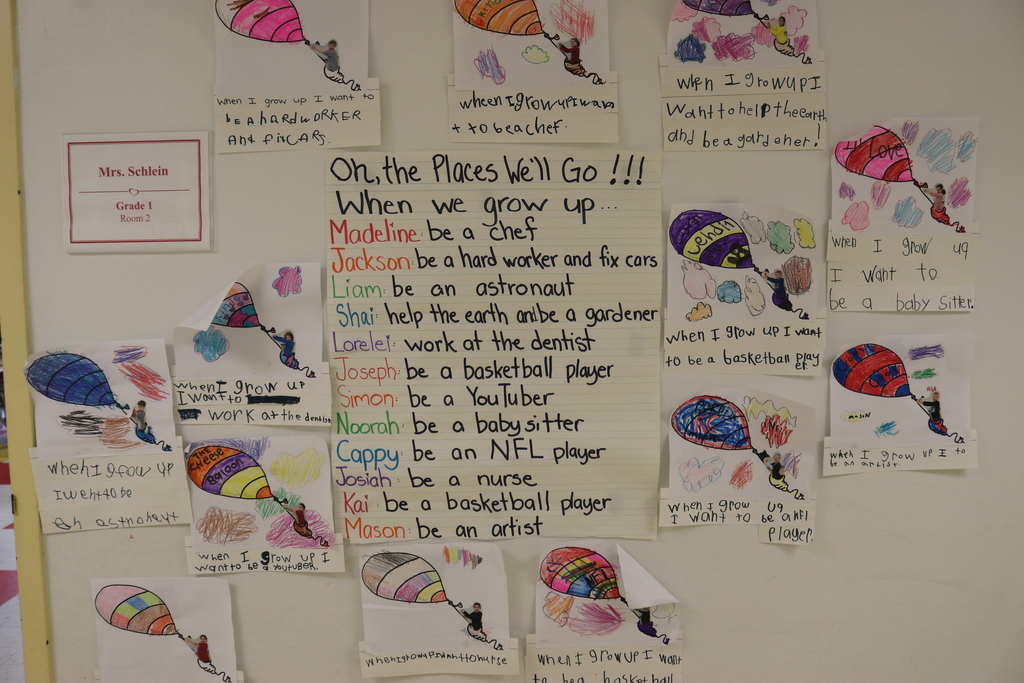 when I grow up I want to
be a hard worker
and fix cars.
wheen I grow up I wan
t to be a chef.
when I grow up I
want to help the earth
and be a gardener!
Mrs. Schlein
Grade 1
Room 2
Oh, the Places We'll Go !!!
When we grow up...
Madeline: be a chef
Jackson: be a hard worker and fix cars
Liam: be an astronaut
Shai: help the earth and be a gardener
Lorelei: work at the dentist
Joseph: be a basketball player
Simon: be a YouTuber
Noorah: be a babysitter
Cappy: be an NFL player
Josiah: be a nurse
Kai: be a basketball player
Mason: be an artist
LOVE
when I grow up
I want to
be a baby sitter.
when I grow up I want
to be a basketball play
er.
when I grow up
I want to
work at the dentist
when I grow up
I went to be
an astronaut
THE
CHEESE
Baloon
when I grow up I
want to be a youtuber.
when I grow up
I want to be a nfl
player.
mason
when I grow up I to
be an artist.
when I grow up I want to nurse
when I grow up I want
to be a basketball